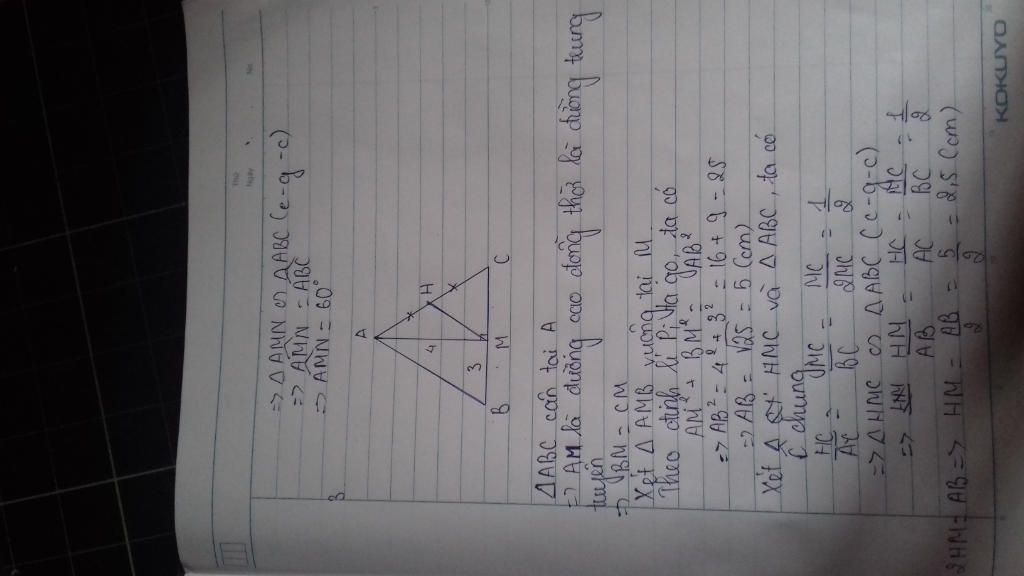 Thứ
Ngày
No.
=> △AMN ∽ △ABC (c-g-c)
=> AMN = ABC
=> AMN = 60°
3
A
H
4
3
B
M
C
△ABC cân tại A
=> AM là đường cao đồng thời là đường trung
tuyến
=> BM = CM
Xét △ AMB vuông tại M
Theo định lí Pi ta go, ta có
AM² + BM² = AB²
=> AB² = 4² + 3² = 16 + 9 = 25
=> AB = √25 = 5 (cm)
Xét △ HMC và △ ABC, ta có
Ĉ chung
HC/AC = MC/BC = MC/2MC = 1/2
=> △HMC ∽ △ABC (c-g-c)
=> HM/AB = HC/AC = MC/BC = 1/2
2HM = AB => HM = AB/2 = 5/2 = 2,5 (cm)
KOKUYO